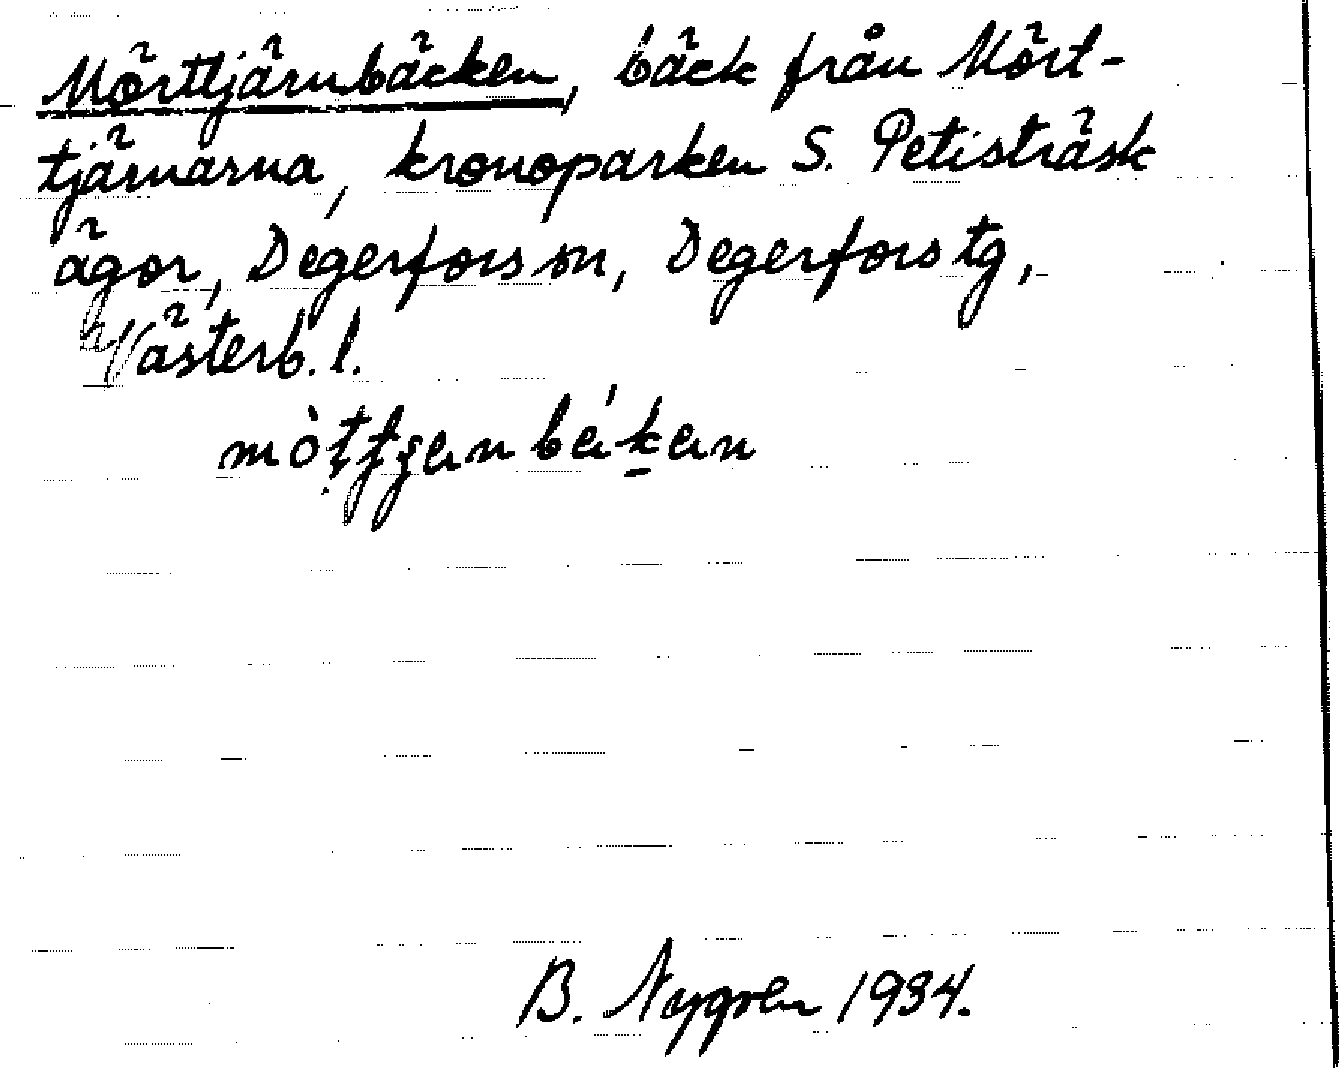 Mörttjärnbäcken, bäck från Mört-
tjärnarna, kronoparken S. Petisträsk
ägor, Degerfors sn, Degerfors tg,
Västerb. l.
B. Nygren 1934.